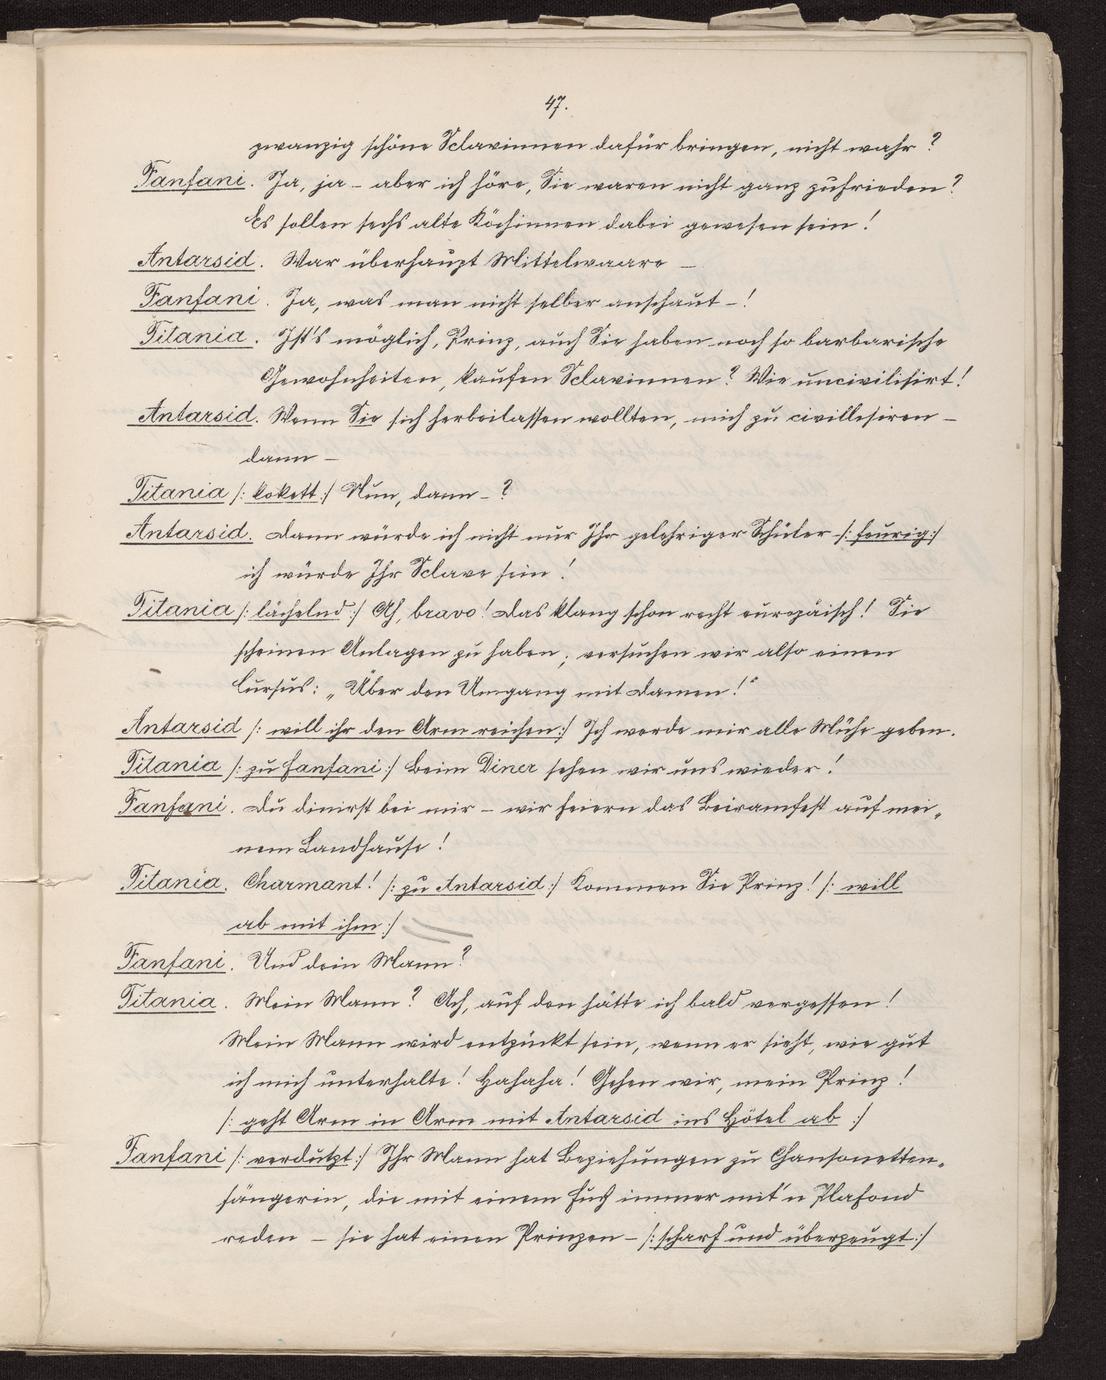 47.
zwanzig schöne Sclavinnen dafür bringen, nicht wahr?
Fanfani. Ja, ja – aber ich höre, Sie waren nicht ganz zufrieden?
Es sollen sechs alte Köchinnen dabei gewesen sein!
Antarsid. War überhaupt Mittelwaare –
Fanfani. Ja, was man nicht selber anschaut –!
Titania. Ist's möglich, Prinz, auch Sie haben noch so barbarische
Gewohnheiten, kaufen Sclavinnen? Wie uncivilisirt!
Antarsid. Wenn Sie sich herbeilassen wollten, mich zu civillisiren –
dann –
Titania /: kokett :/ Nun, dann –?
Antarsid. Dann würde ich nicht nur Ihr gelehriger Schüler /: feurig :/
ich würde Ihr Sclave sein!
Titania /: lächelnd :/ Ah, bravo! Das klang schon recht europäisch! Sie
scheinen Anlagen zu haben; versuchen wir also einen
Cursus: „Über den Umgang mit Damen!“
Antarsid /: will ihr den Arm reichen :/ Ich werde mir alle Mühe geben.
Titania /: zu Fanfani :/ Beim Diner sehen wir uns wieder!
Fanfani. Du dinirst bei mir – wir feiern das Beiramfest auf mei-
nem Landhause!
Titania. Charmant! /: zu Antarsid :/ Kommen Sie Prinz! /: will
ab mit ihm :/
Fanfani. Und dein Mann?
Titania. Mein Mann? Ach, auf den hätte ich bald vergessen!
Mein Mann wird entzückt sein, wenn er sieht, wie gut
ich mich unterhalte! Hahaha! Gehen wir, mein Prinz!
/: geht Arm in Arm mit Antarsid ins Hôtel ab :/
Fanfani /: verdutzt :/ Ihr Mann hat Beziehungen zu Chansonetten-
sängerin, die mit einem Fuß immer mit'n Plafond
reden – sie hat einen Prinzen – /: scharf und überzeugt :/